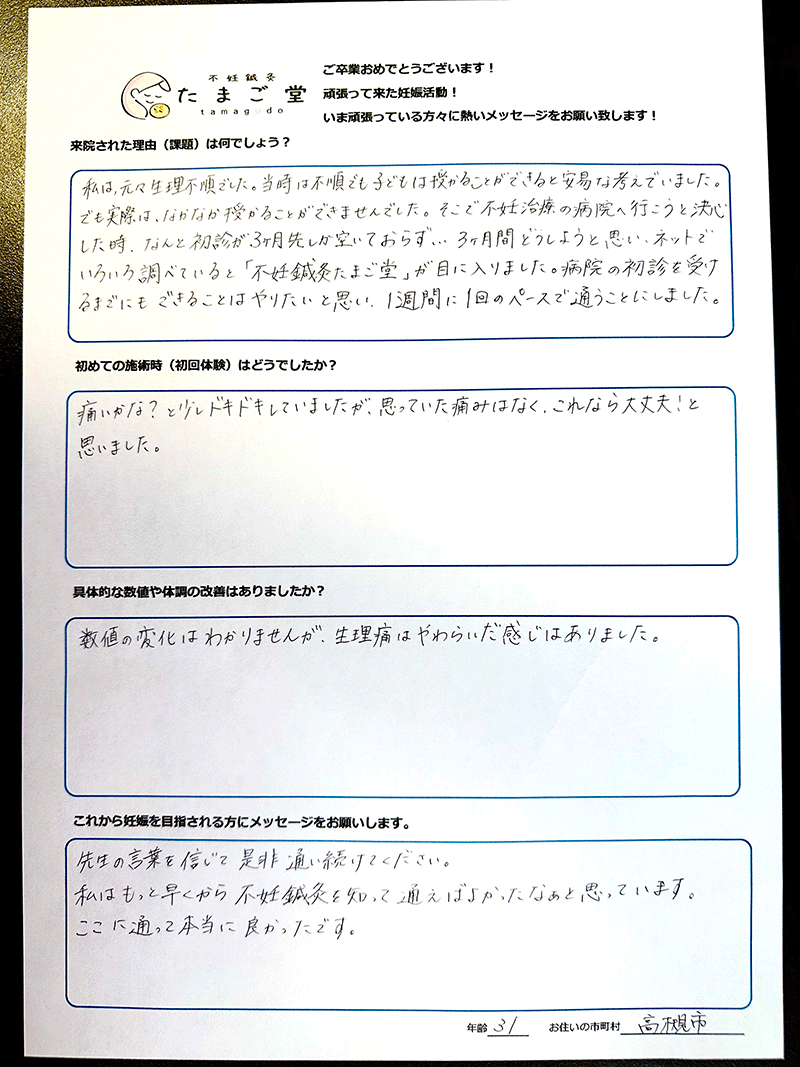 不妊鍼灸
たまご堂
tamagodo
ご卒業おめでとうございます！
頑張って来た妊娠活動！
いま頑張っている方々に熱いメッセージをお願い致します！
来院された理由（課題）は何でしょう？
私は、元々生理不順でした。当時は不順でも子どもは授かることができると安易な考えでいました。
でも実際は、なかなか授かることができませんでした。そこで不妊治療の病院へ行こうと決心
した時、なんと初診が3ヶ月先しか空いておらず… 3ヶ月間どうしようと思い、ネットで
いろいろ調べていると「不妊鍼灸たまご堂」が目に入りました。病院の初診を受け
るまでにも できることはやりたいと思い、1週間に1回のペースで通うことにしました。
初めての施術時（初回体験）はどうでしたか？
痛いかな？と少しドキドキしていましたが、思っていた痛みはなく、これなら大丈夫！と
思いました。
具体的な数値や体調の改善はありましたか？
数値の変化はわかりませんが、生理痛はやわらいだ感じはありました。
これから妊娠を目指される方にメッセージをお願いします。
先生の言葉を信じて是非通い続けてください。
私はもっと早くから不妊鍼灸を知って通えばよかったなぁと思っています。
ここに通って本当に良かったです。
年齢 31 お住いの市町村 高槻市